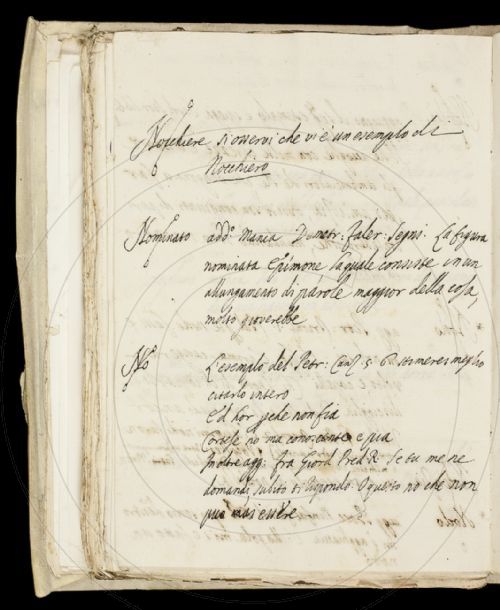 Nocchiere si osservi che vi è un esempio di
Nocchiero
Nominato add. Mania Demetr: Faler: Segni: La figura
nominata Epimone la quale consiste in un
allungamento di parole maggior della cosa,
molto gioverebbe
No L'esempio del Petr: Canz. 5. stomerei meglio
citarlo intero
Ed hor perche non fia
Cortese nò ma conoscente e pia
Inoltre agg: fra Giord Pred R. Se tu me ne
domandi subito ti rispondo. O questo no che non
può mai essere